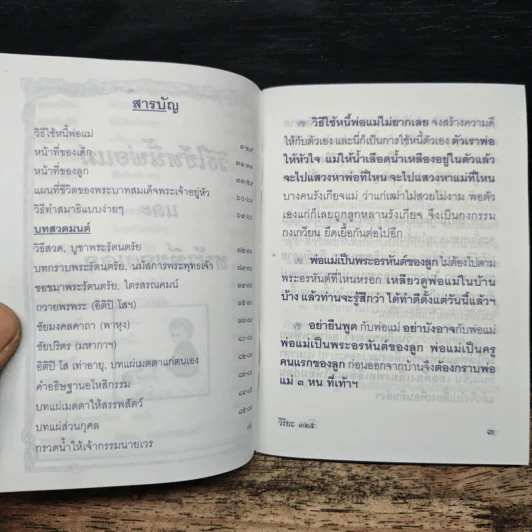 สารบัญ
วิธีใช้หนี้พ่อแม่
หน้าที่ของเด็ก
หน้าที่ของลูก
แผนที่ชีวิตของพระบาทสมเด็จพระเจ้าอยู่หัว
วิธีทำสมาธิแบบง่ายๆ
บทสวดมนต์
วิธีสวด, บูชาพระรัตนตรัย
บทกราบพระรัตนตรัย, นมัสการพระพุทธเจ้า
ขอขมาพระรัตนตรัย, ไตรสรณคมน์
ถวายพรพระ (อิติปิ โสฯ)
ชัยมงคลคาถา (พาหุง)
ชัยปริตร (มหากาฯ)
อิติปิ โส เท่าอายุ, บทแผ่เมตตาแก่ตนเอง
คำอธิษฐานอโหสิกรรม
บทแผ่เมตตาให้สรรพสัตว์
บทแผ่ส่วนกุศล
กรวดน้ำให้เจ้ากรรมนายเวร
วิธีใช้หนี้พ่อแม่ไม่ยากเลย จงสร้างความดี
ให้กับตัวเอง และนี่ก็เป็นการใช้หนี้ตัวเอง ตัวเราพ่อ
ให้หัวใจ แม่ให้น้ำเลือดน้ำเหลืองอยู่ในตัวแล้ว
จะไปแสวงหาพ่อที่ไหน จะไปแสวงหาแม่ที่ไหน
บางคนรังเกียจแม่ ว่าแก่เฒ่าไม่สวยไม่งาม พอตัว
เองแก่ก็เลยถูกลูกหลานรังเกียจ จึงเป็นกงกรรม
กงเกวียน ยืดเยื้อกันต่อไปอีก
พ่อแม่เป็นพระอรหันต์ของลูก ไม่ต้องไปตาม
พระอรหันต์ที่ไหนหรอก เหลียวดูพ่อแม่ในบ้าน
บ้าง แล้วท่านจะรู้สึกว่า ได้ทำดีตั้งแต่วันนี้แล้วฯ
อย่ายืนพูด กับพ่อแม่ อย่าบังอาจกับพ่อแม่
พ่อแม่เป็นพระอรหันต์ของลูก พ่อแม่เป็นครู
คนแรกของลูก ก่อนออกจากบ้านจึงต้องกราบพ่อ
แม่ ๓ หน ที่เท้าฯ
วิริยะ ๓๒๕
๓